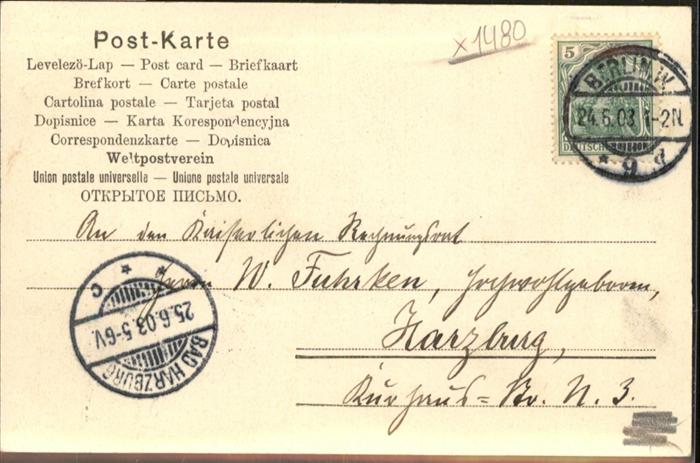 Post-Karte
Levelezö-Lap — Post card — Briefkaart
Brefkort — Carte postale
Cartolina postale — Tarjeta postal
Dopisnice — Karta Korespondencyjna
Correspondenzkarte — Dopisnica
Weltpostverein
Union postale universelle — Unione postale universale
ОТКРЫТОЕ ПИСЬМО.
x1480
5
BERLIN W.
24.6.03 1-2N.
* 9 d
An den Kaiserlichen Rechnungsrat
Herrn W. Fuhrken, Hochwohlgeboren,
Harzburg,
Kurhaus=Str. N. 3.
* * C
25.6.03.5-6V.
BAD HARZBURG